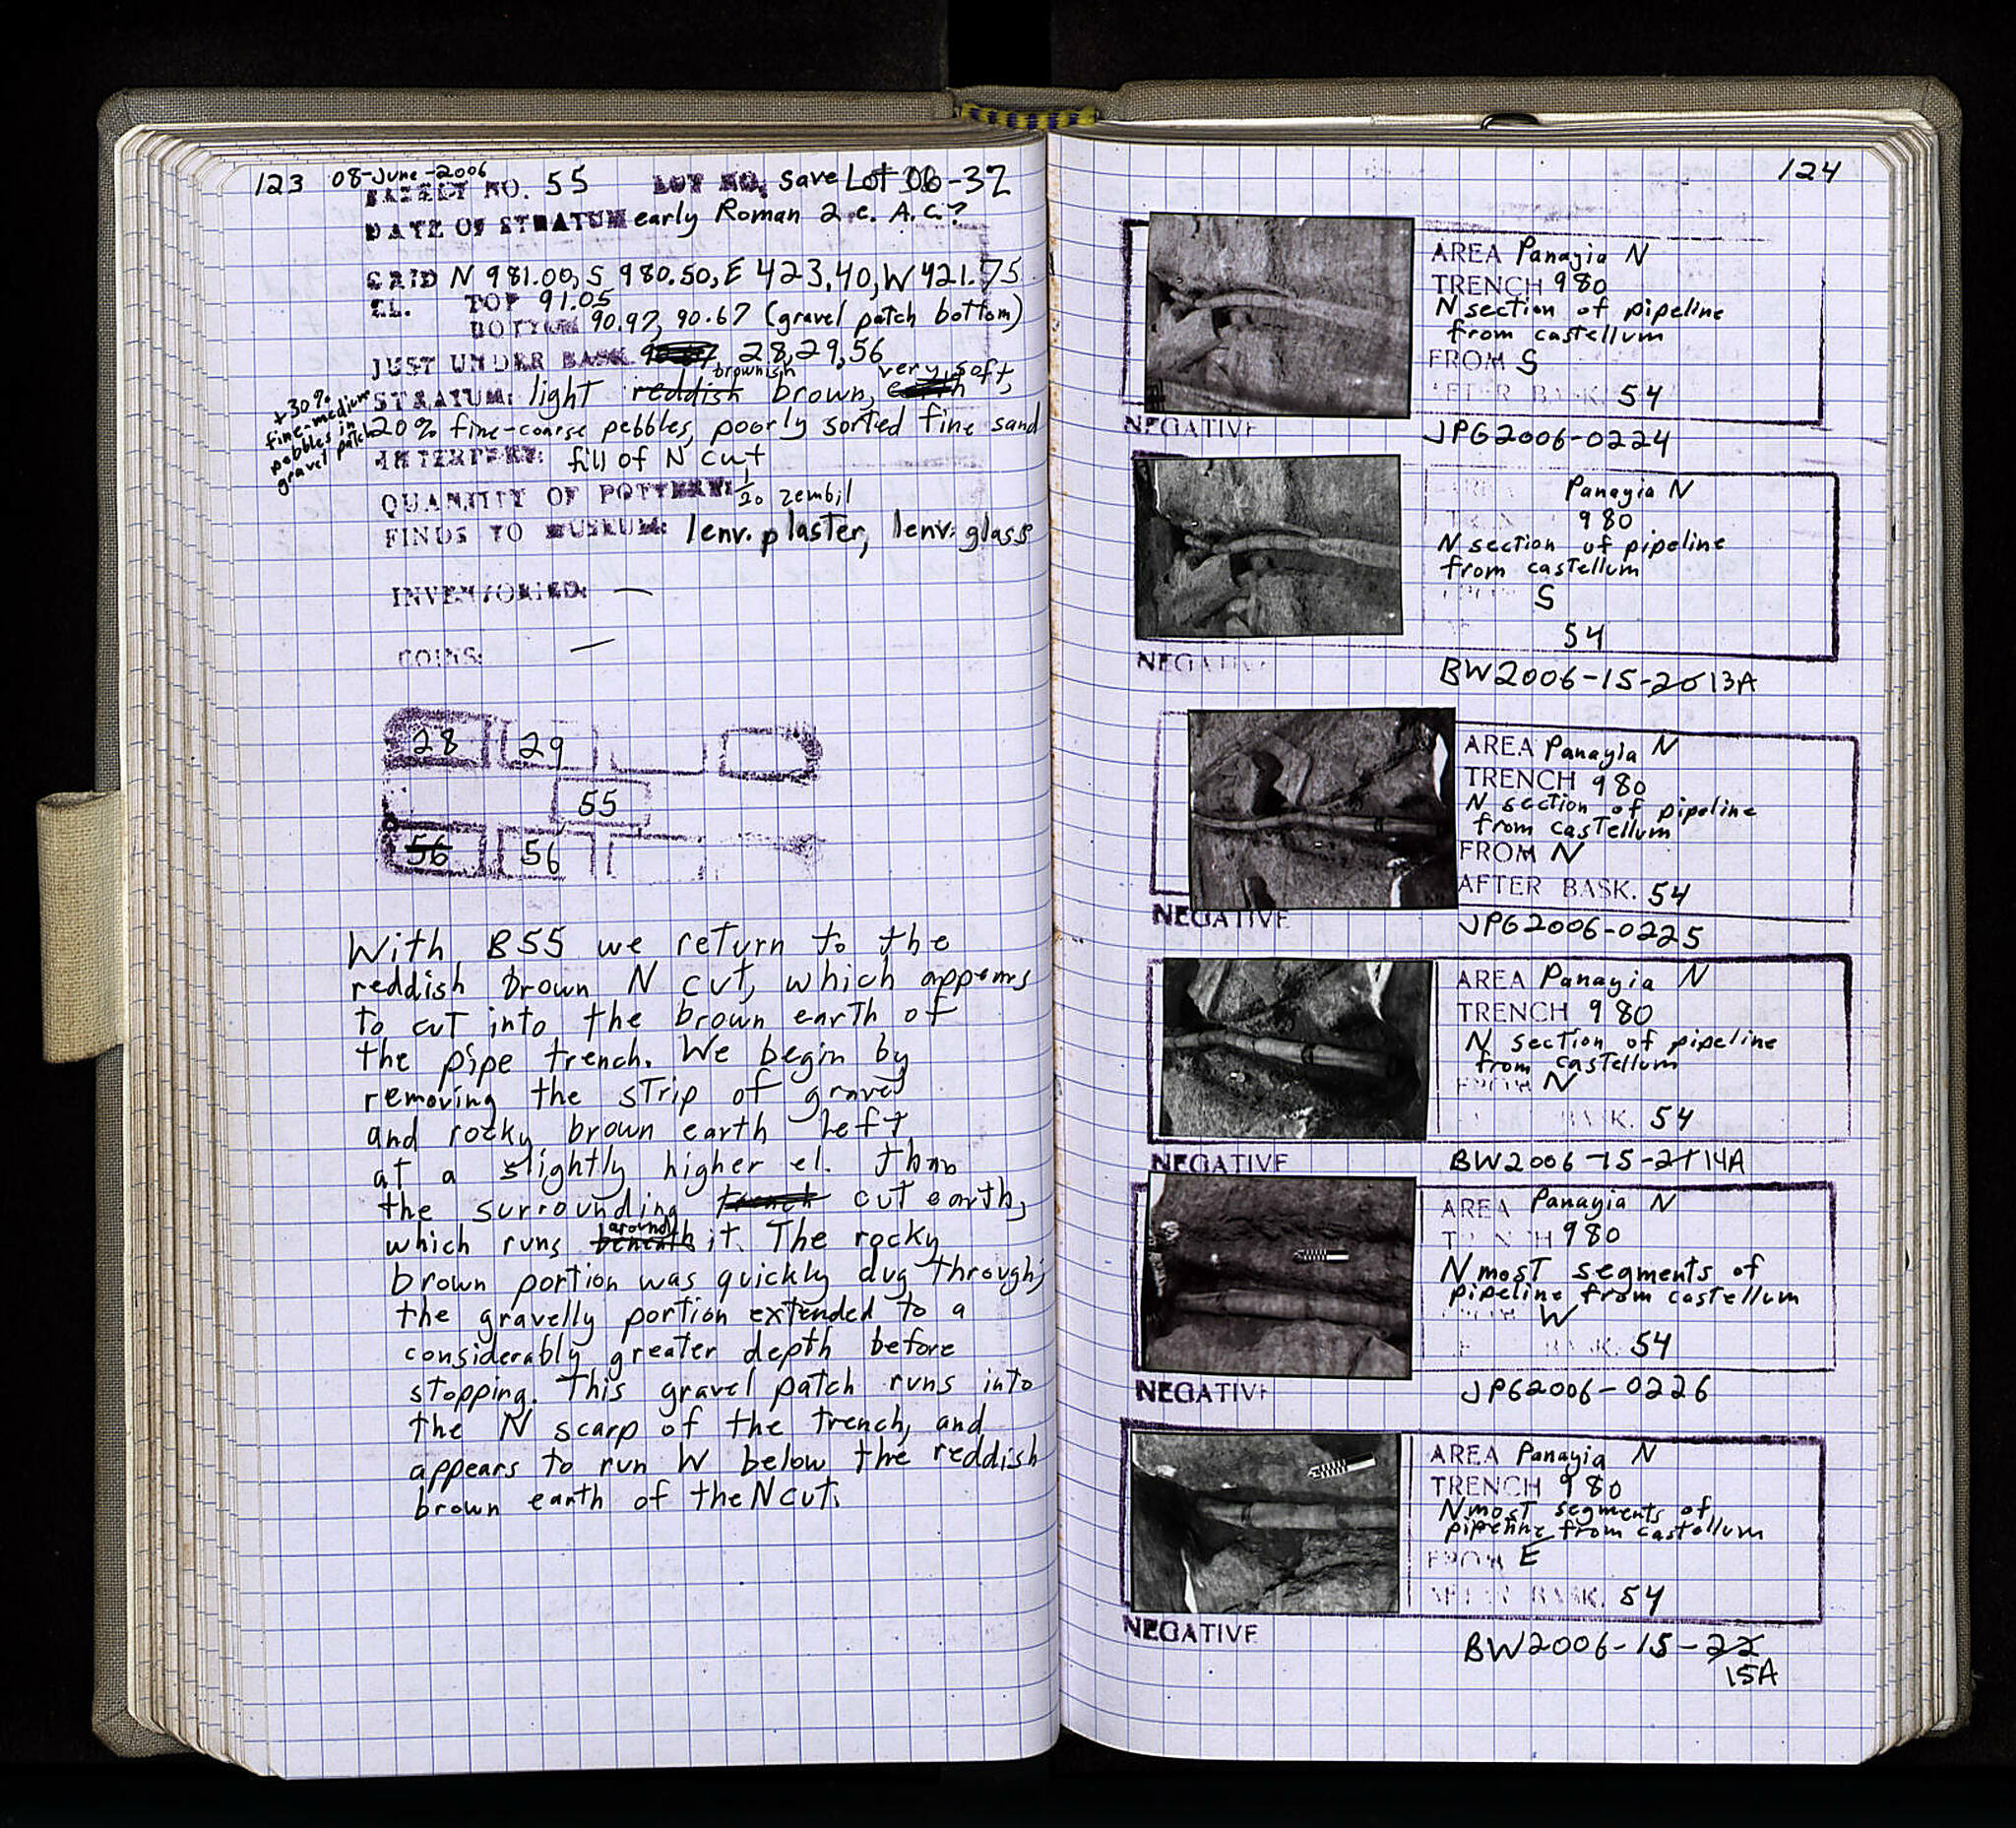 123 08-June-2006
BASKET NO. 55 LOT NO. save Lot 06-32
DATE OF STRATUM early Roman 2 c. A.C.?
GRID N 981.00, S 980.50, E 423.40, W 421.75
EL. TOP 91.05
BOTTOM 90.97, 90.67 (gravel patch bottom)
JUST UNDER BASK. 28, 29, 56
brownish very soft,
STRATUM: light reddish brown, earth
+30% fine-medium pebbles in gravel patch
20% fine-coarse pebbles, poorly sorted fine sand
INTERPRET: fill of N cut
QUANTITY OF POTTERY: 1/20 zembil
FINDS TO MUSEUM: 1 env. plaster, 1 env. glass
INVENTORIED: —
COINS: —
28 29
55
56 56
With B55 we return to the
reddish brown N cut, which appears
to cut into the brown earth of
the pipe trench. We begin by
removing the strip of gravel
and rocky brown earth left
at a slightly higher el. than
the surrounding trench cut earth,
around
which runs beneath it. The rocky
brown portion was quickly dug through;
the gravelly portion extended to a
considerably greater depth before
stopping. This gravel patch runs into
the N scarp of the trench, and
appears to run W below the reddish
brown earth of the N cut.
124
AREA Panayia N
TRENCH 980
N section of pipeline
from castellum
FROM S
AFTER BASK. 54
NEGATIVE JPG2006-0224
AREA Panayia N
TRENCH 980
N section of pipeline
from castellum
FROM S
54
NEGATIVE BW2006-15-20 13A
AREA Panayia N
TRENCH 980
N section of pipeline
from castellum
FROM N
AFTER BASK. 54
NEGATIVE JPG2006-0225
AREA Panayia N
TRENCH 980
N section of pipeline
from castellum
FROM N
BASK. 54
NEGATIVE BW2006-15-21 14A
AREA Panayia N
TRENCH 980
Nmost segments of
pipeline from castellum
FROM W
BASK. 54
NEGATIVE JPG2006-0226
AREA Panayia N
TRENCH 980
Nmost segments of
pipeline from castellum
FROM E
AFTER BASK. 54
NEGATIVE BW2006-15-22
15A